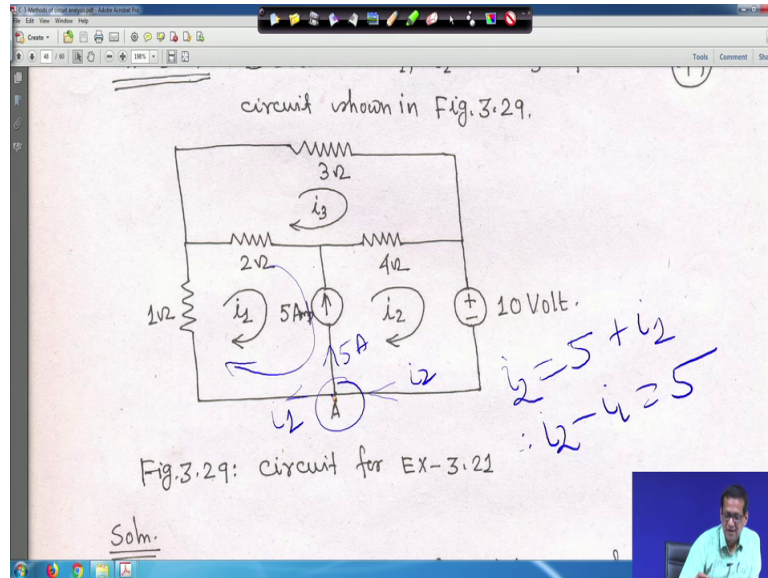 C-3-Methods of circuit analysis.pdf - Adobe Acrobat Pro
File Edit View Window Help
Create
48 / 60
198%
Tools Comment Sha
circuit shown in Fig. 3.29.
3Ω
i3
2Ω 4Ω
1Ω i1 5Amp i2 + - 10 Volt.
5A
i2
i1 A
i2 = 5 + i2
∴ i2 - i1 = 5
Fig. 3.29: circuit for EX-3.21
Soln.